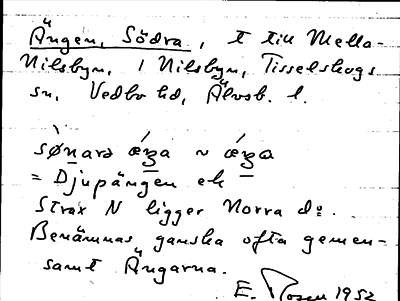 Ängen, Södra, t till Mella-
Nilsbyn, i Nilsbyn, Tisselskogs
sn, Vedbo hd, Älvsb. l.
sǿnarə ǽŋa ~ ǽŋa
= Djupängen ek
Strax N ligger Norra d:o.
Benämnas ganska ofta gemen-
samt Ängarna.
E. Rosen 1952